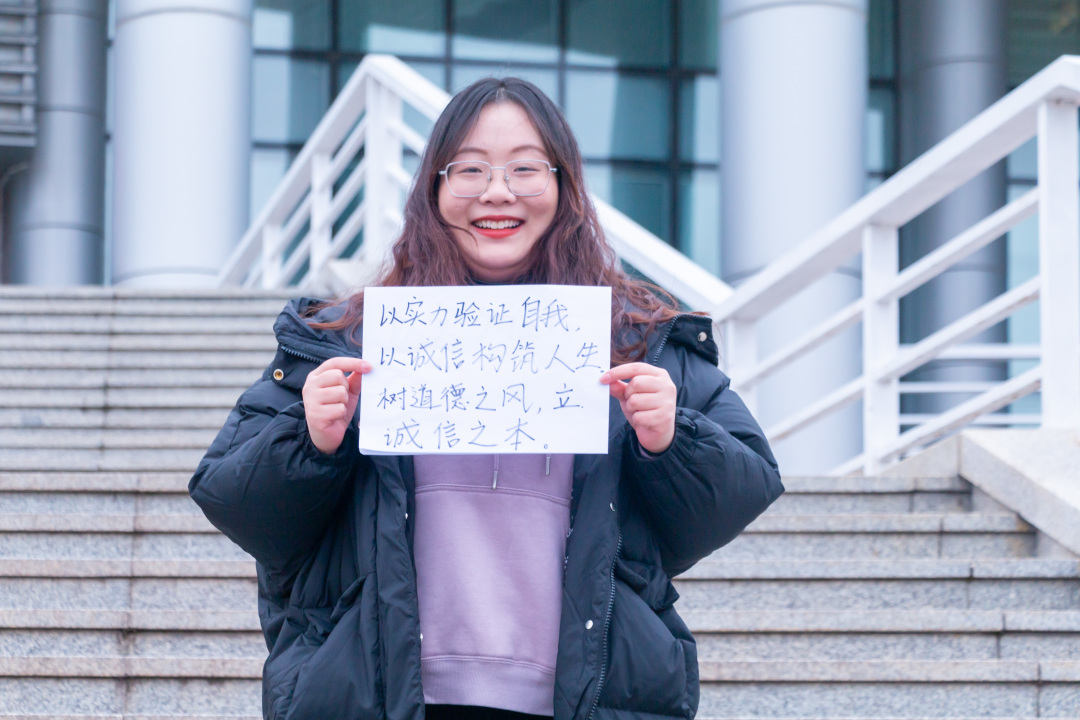 以实力验证自我，
以诚信构筑人生
树道德之风，立
诚信之本。